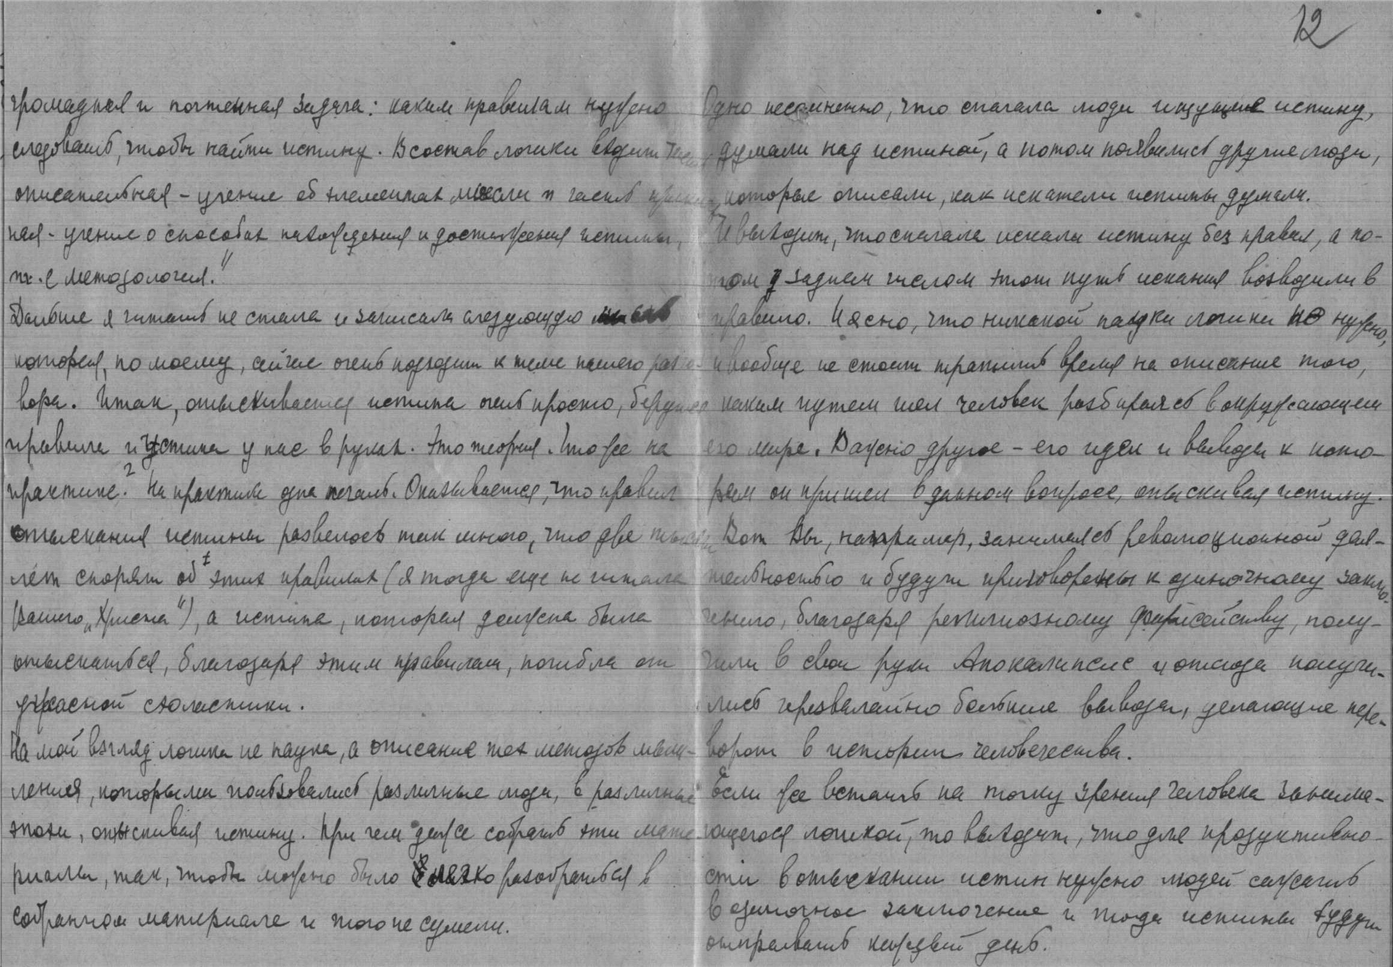 12
громадная и почтенная задача: каким правилам нужно
следовать, чтобы найти истину. В состав логики входит
описательная – учение об элементах мысли и часть
ная – учение о способах нахождения и достижения истины,
т.е методология."
Дальше я читать не стала и записала следующую
которая, по моему, сейчас очень подходит к теме нашего разго-
вора. Итак, отыскивается истина очень просто, берутся
правила и истина у нас в руках. Это теория. Что же на
практике? На практике одна печаль. Оказывается, что правил
отыскания истины развелось так много, что две тысячи
лет спорят об этих правилах (я тогда еще не читала
Вашего „Христа"), а истина, которая должна была
отыскаться, благодаря этим правилам, погибла от
ужасной схоластики.
На мой взгляд логика не наука, а описание тех методов мыш-
ления, которыми пользовались различные люди, в различные
эпохи, отыскивая истину. При чем даже собрать эти мате-
риалы, так, чтобы можно было легко разобраться в
собранном материале и того не сумели.
Одно несомненно, что сначала люди ищущие истину,
думали над истиной, а потом появились другие люди,
которые описали, как искатели истины думали.
И выходит, что сначала искали истину без правил, а по-
том задним числом этот путь искания возводили в
правило. И ясно, что никакой науки логики не нужно,
и вообще не стоит тратить время на описание того,
каким путем шел человек разбираясь в окружающем
его мире. Важно другое – его идеи и выводы к кото-
рым он пришел в данном вопросе, отыскивая истину.
Вот Вы, например, занимаясь революционной дея-
тельностью и будучи приговорены к одиночному заклю-
чению, благодаря религиозному фарисейству, полу-
чили в свои руки Апокалипсис и отсюда получи-
лись чрезвычайно большие выводы, делающие пере-
ворот в истории человечества.
Если же встать на точку зрения человека занима-
ющегося логикой, то выходит, что для продуктивно-
сти в отыскании истин нужно людей сажать
в одиночное заключение и тогда истины будут
открывать каждый день.